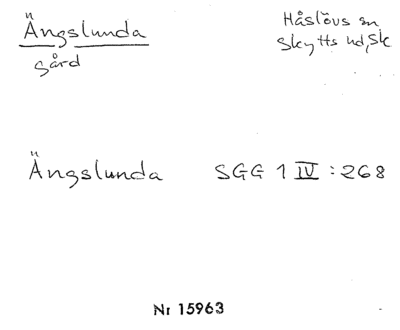 Ängslunda
gård
Håslövs sn
Skytts hd, Sk
Ängslunda SGG 1 IV : 268
Nr 15963